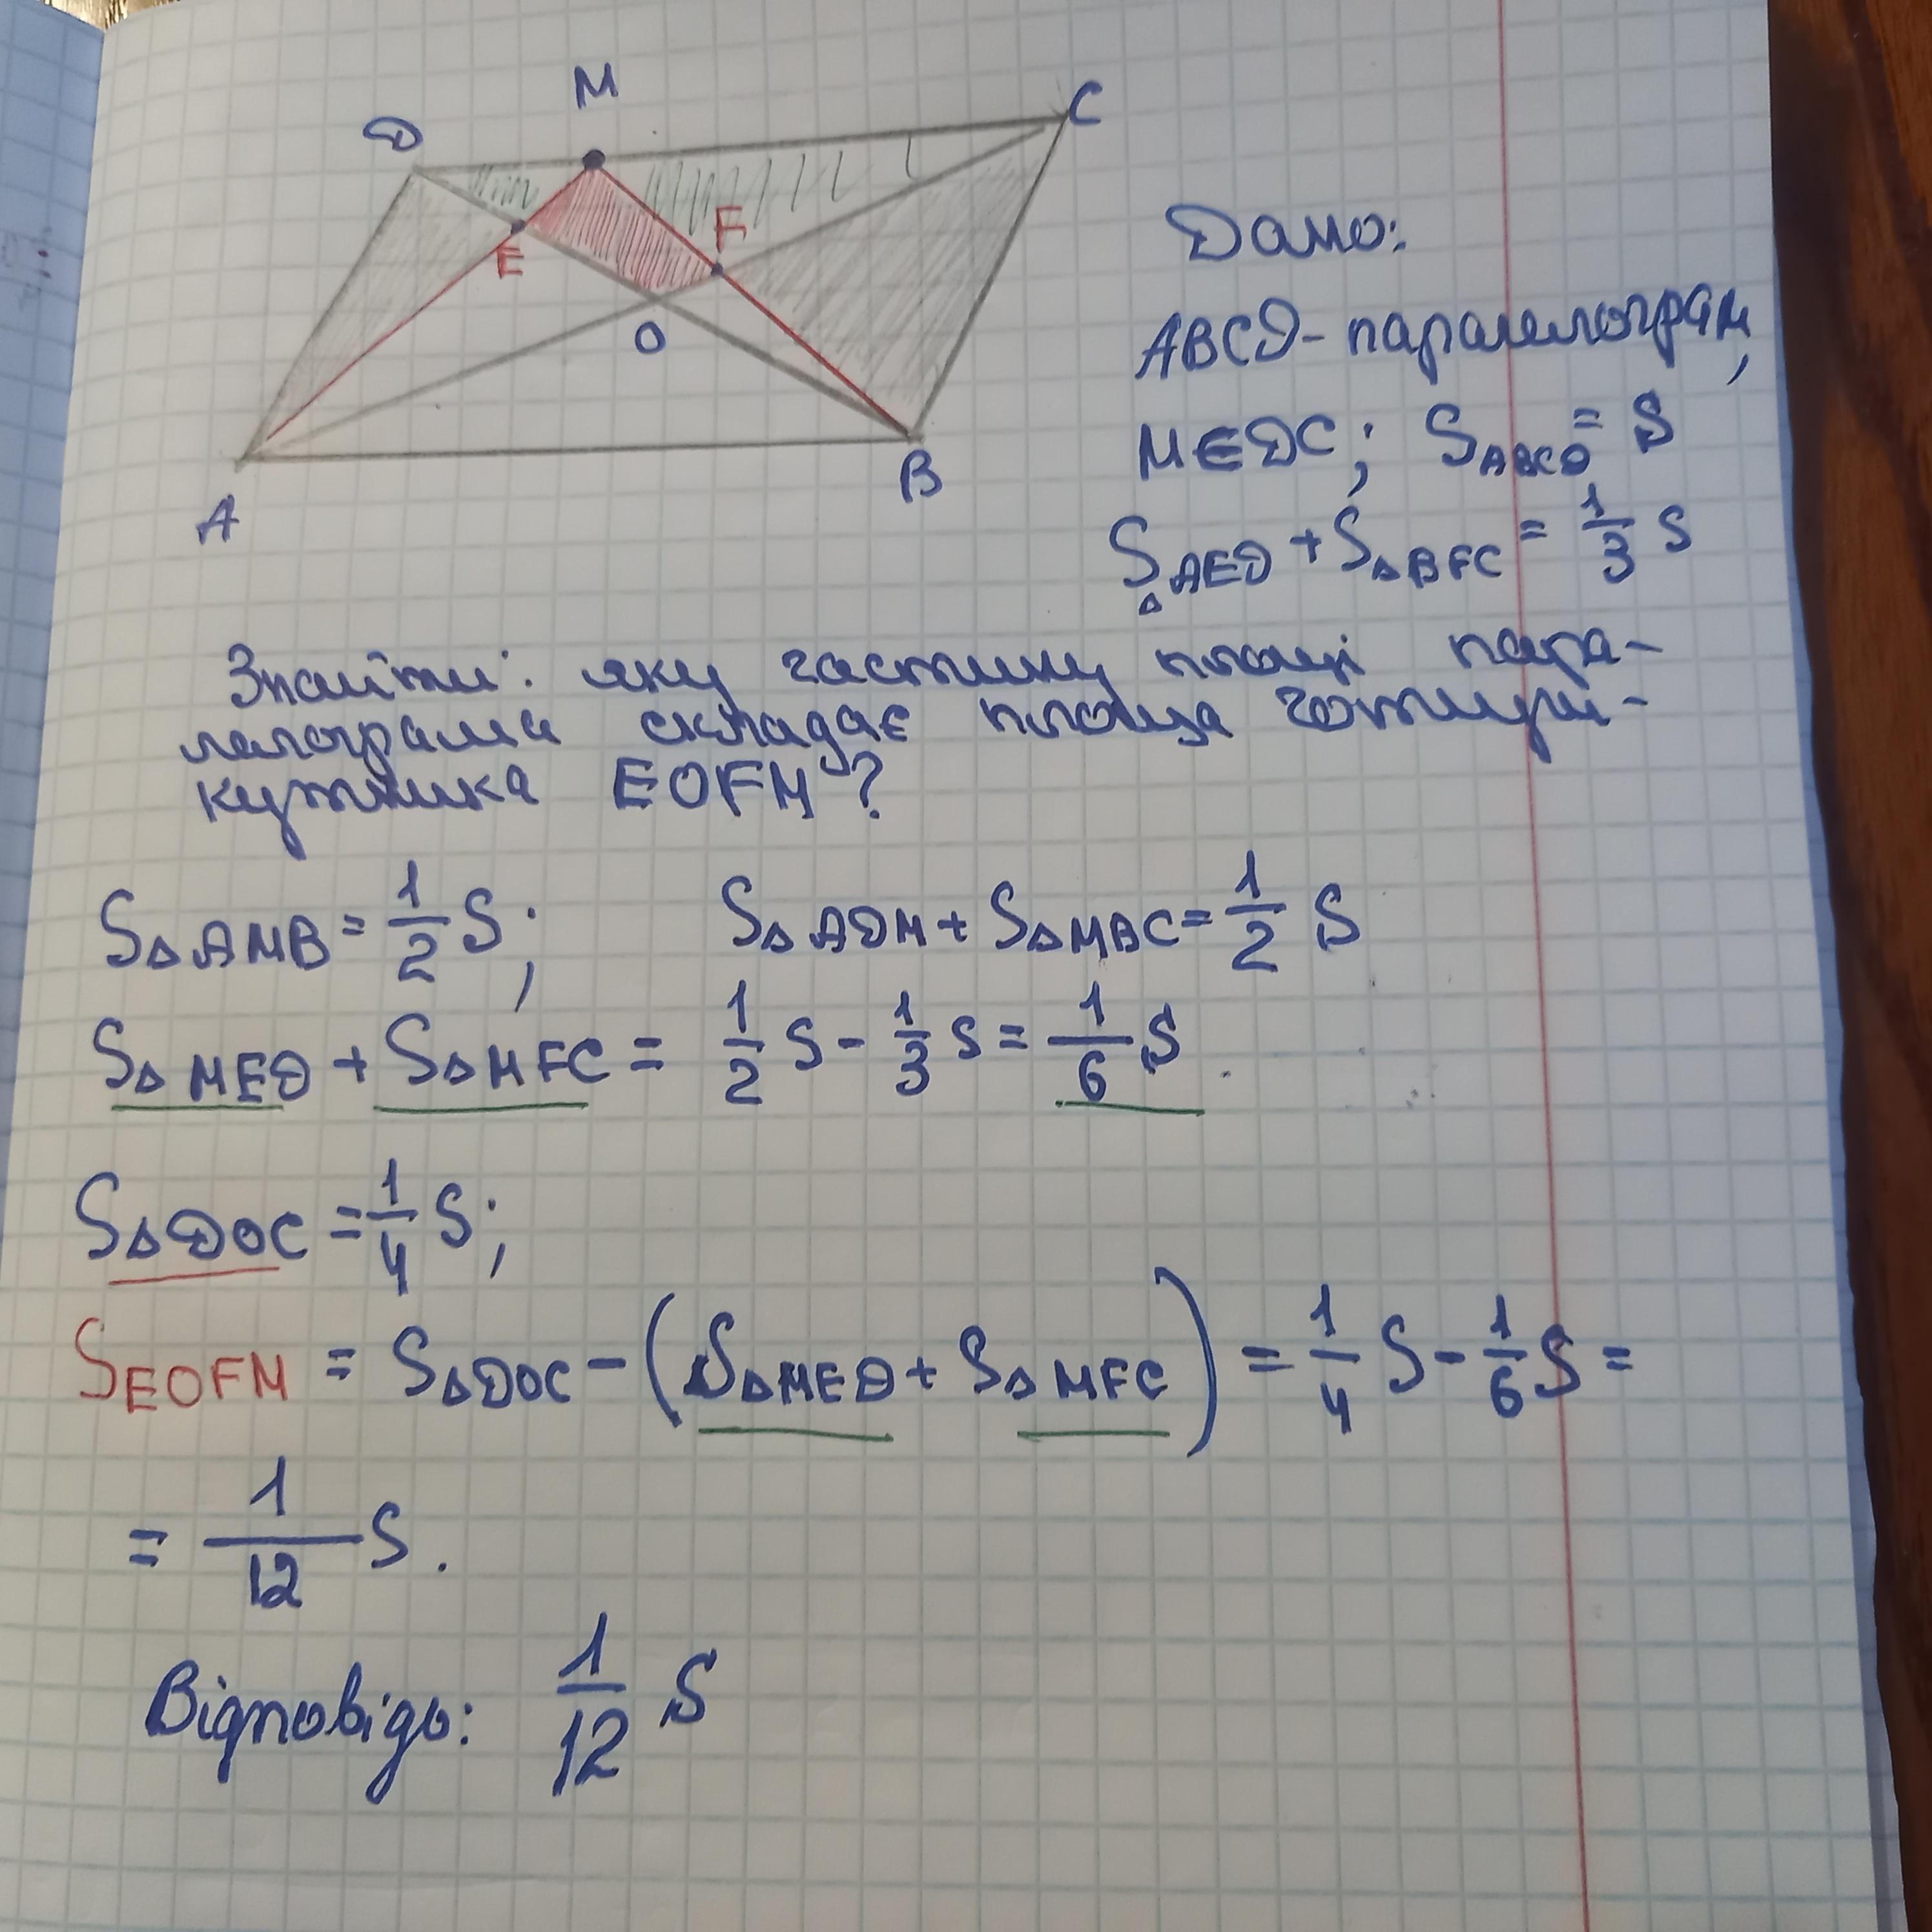 M
D
C
E
F
O
A
B
Дано:
ABCD - паралелограм,
M∈DC; S_ABCD = S
S_△AED + S_△BFC = 1/3 S
Знайти: яку частину площі пара-
лелограма складає площа чотири-
кутника EOFM?
S_△AMB = 1/2 S; S_△ADM + S_△MBC = 1/2 S
S_△MED + S_△MFC = 1/2 S - 1/3 S = 1/6 S.
S_△DOC = 1/4 S;
S_EOFM = S_△DOC - (S_△MED + S_△MFC) = 1/4 S - 1/6 S =
= 1/12 S.
Відповідь: 1/12 S